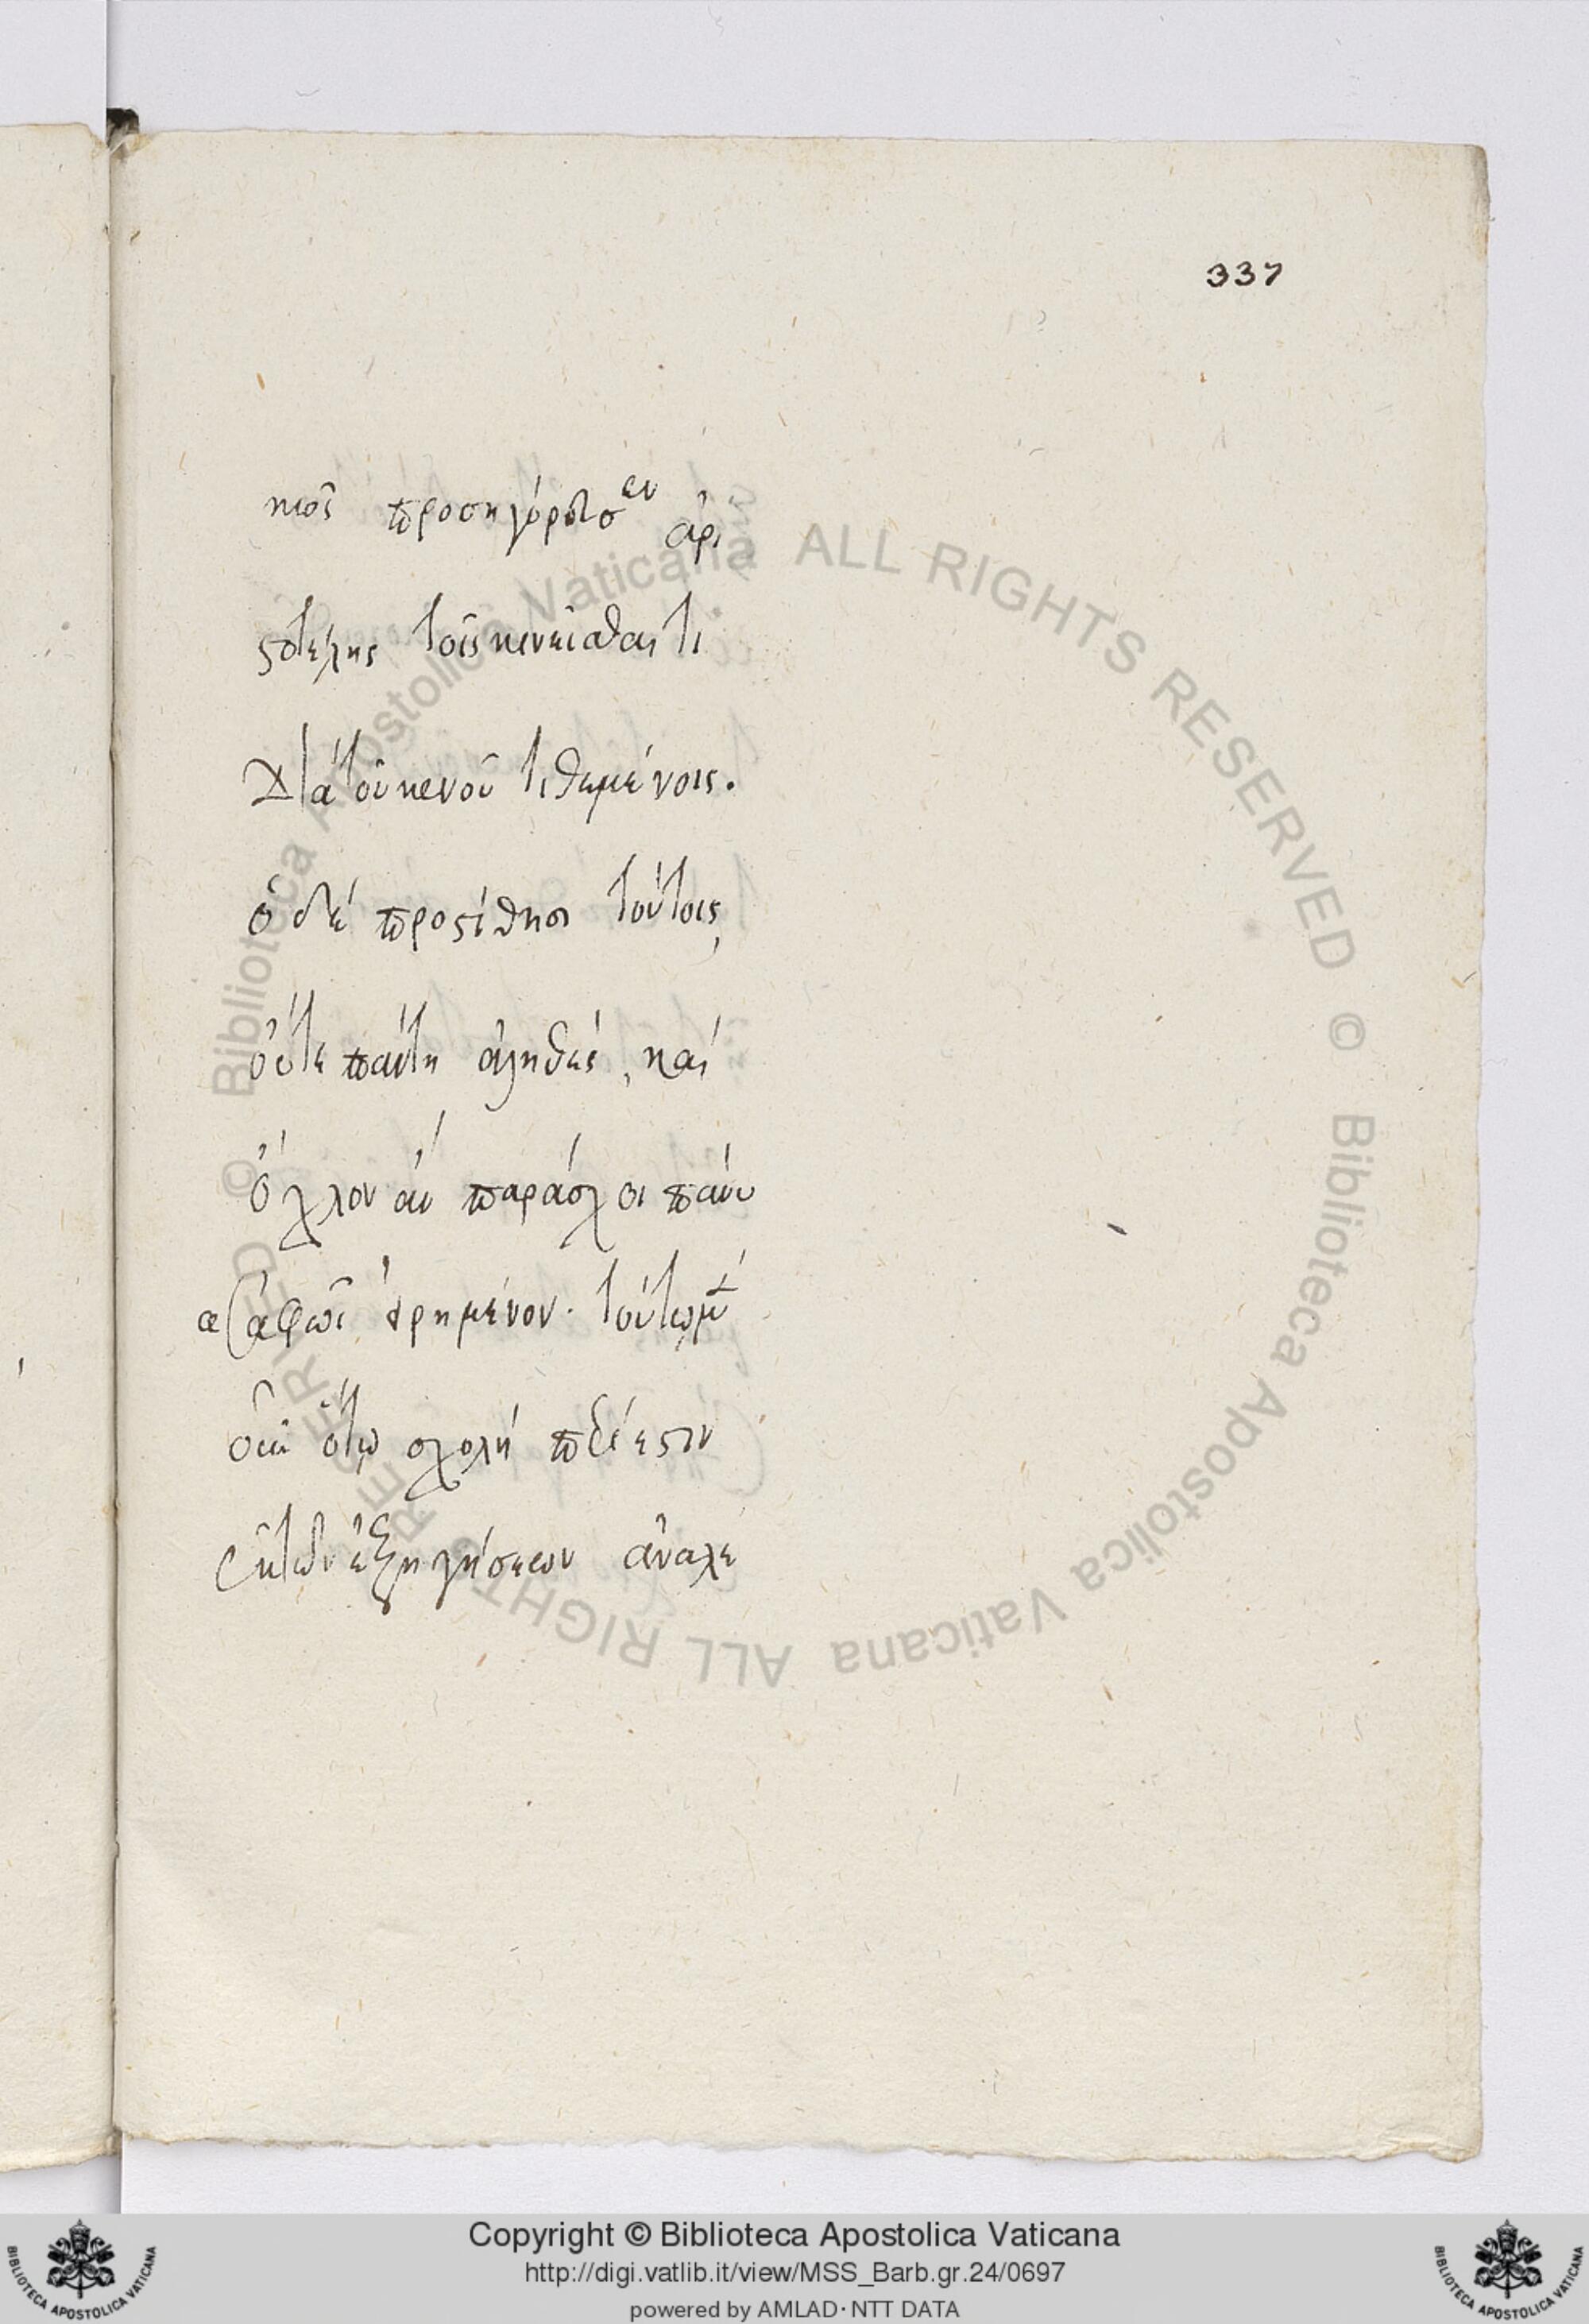 337
κιοῖ προσηγόρευσεν ἀρι
στέλης τοῖς κενεῖσθαι τι
διὰ τοῦ κενοῦ τιθεμένοις.
ὁ δὲ προστίθησι τούτοις,
οὔτε πάντη ἀληθὲς, καὶ
ὄχλον ἂν παράσχοι πάνυ
ἀσαφῶς εἰρημένον. τούτῳ μὲν
οὖν ὅτῳ σχολὴ πάρεστιν
ἐκ τῶν ἐξηγήσεων ἀναλε
© Biblioteca Apostolica Vaticana ALL RIGHTS RESERVED © Biblioteca Apostolica Vaticana ALL RIGHTS RESERVED
Copyright © Biblioteca Apostolica Vaticana
http://digi.vatlib.it/view/MSS_Barb.gr.24/0697
powered by AMLAD·NTT DATA
BIBLIOTECA APOSTOLICA VATICANA
BIBLIOTECA APOSTOLICA VATICANA